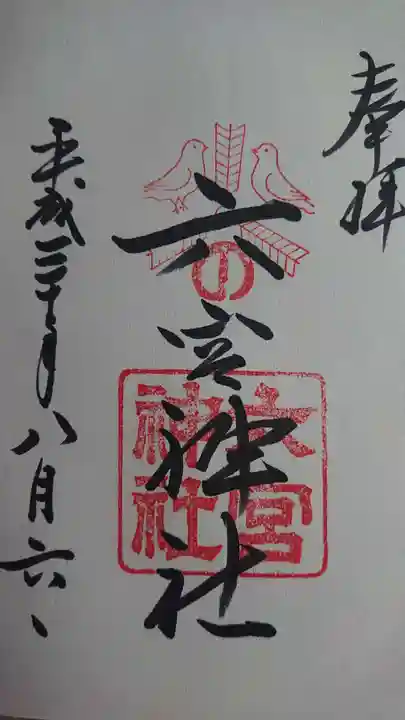 奉拝
六宮神社
の
六宮
神社
平成三十年八月六、